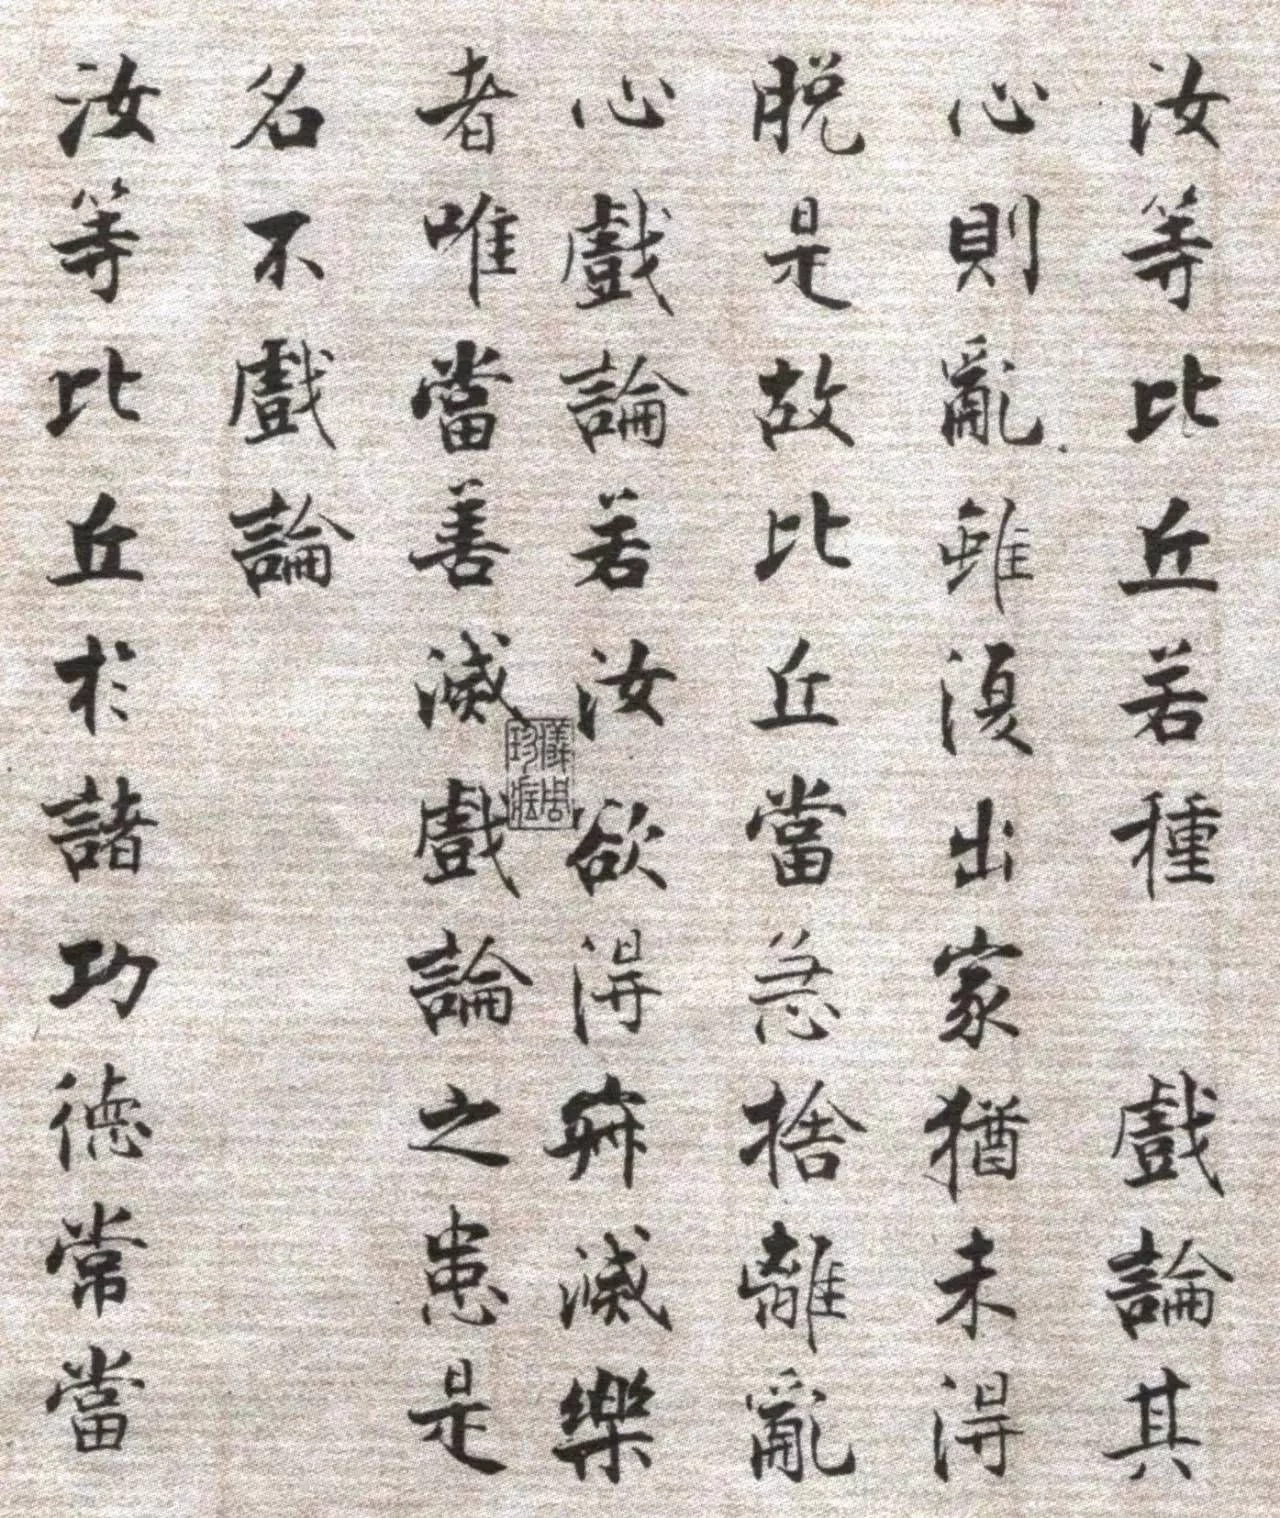 汝等比丘若種 戲論其
心則亂雖復出家猶未得
脫是故比丘當急捨離亂
心戲論若汝欲得寂滅樂
者唯當善滅戲論之患是
名不戲論
汝等比丘於諸功德常當